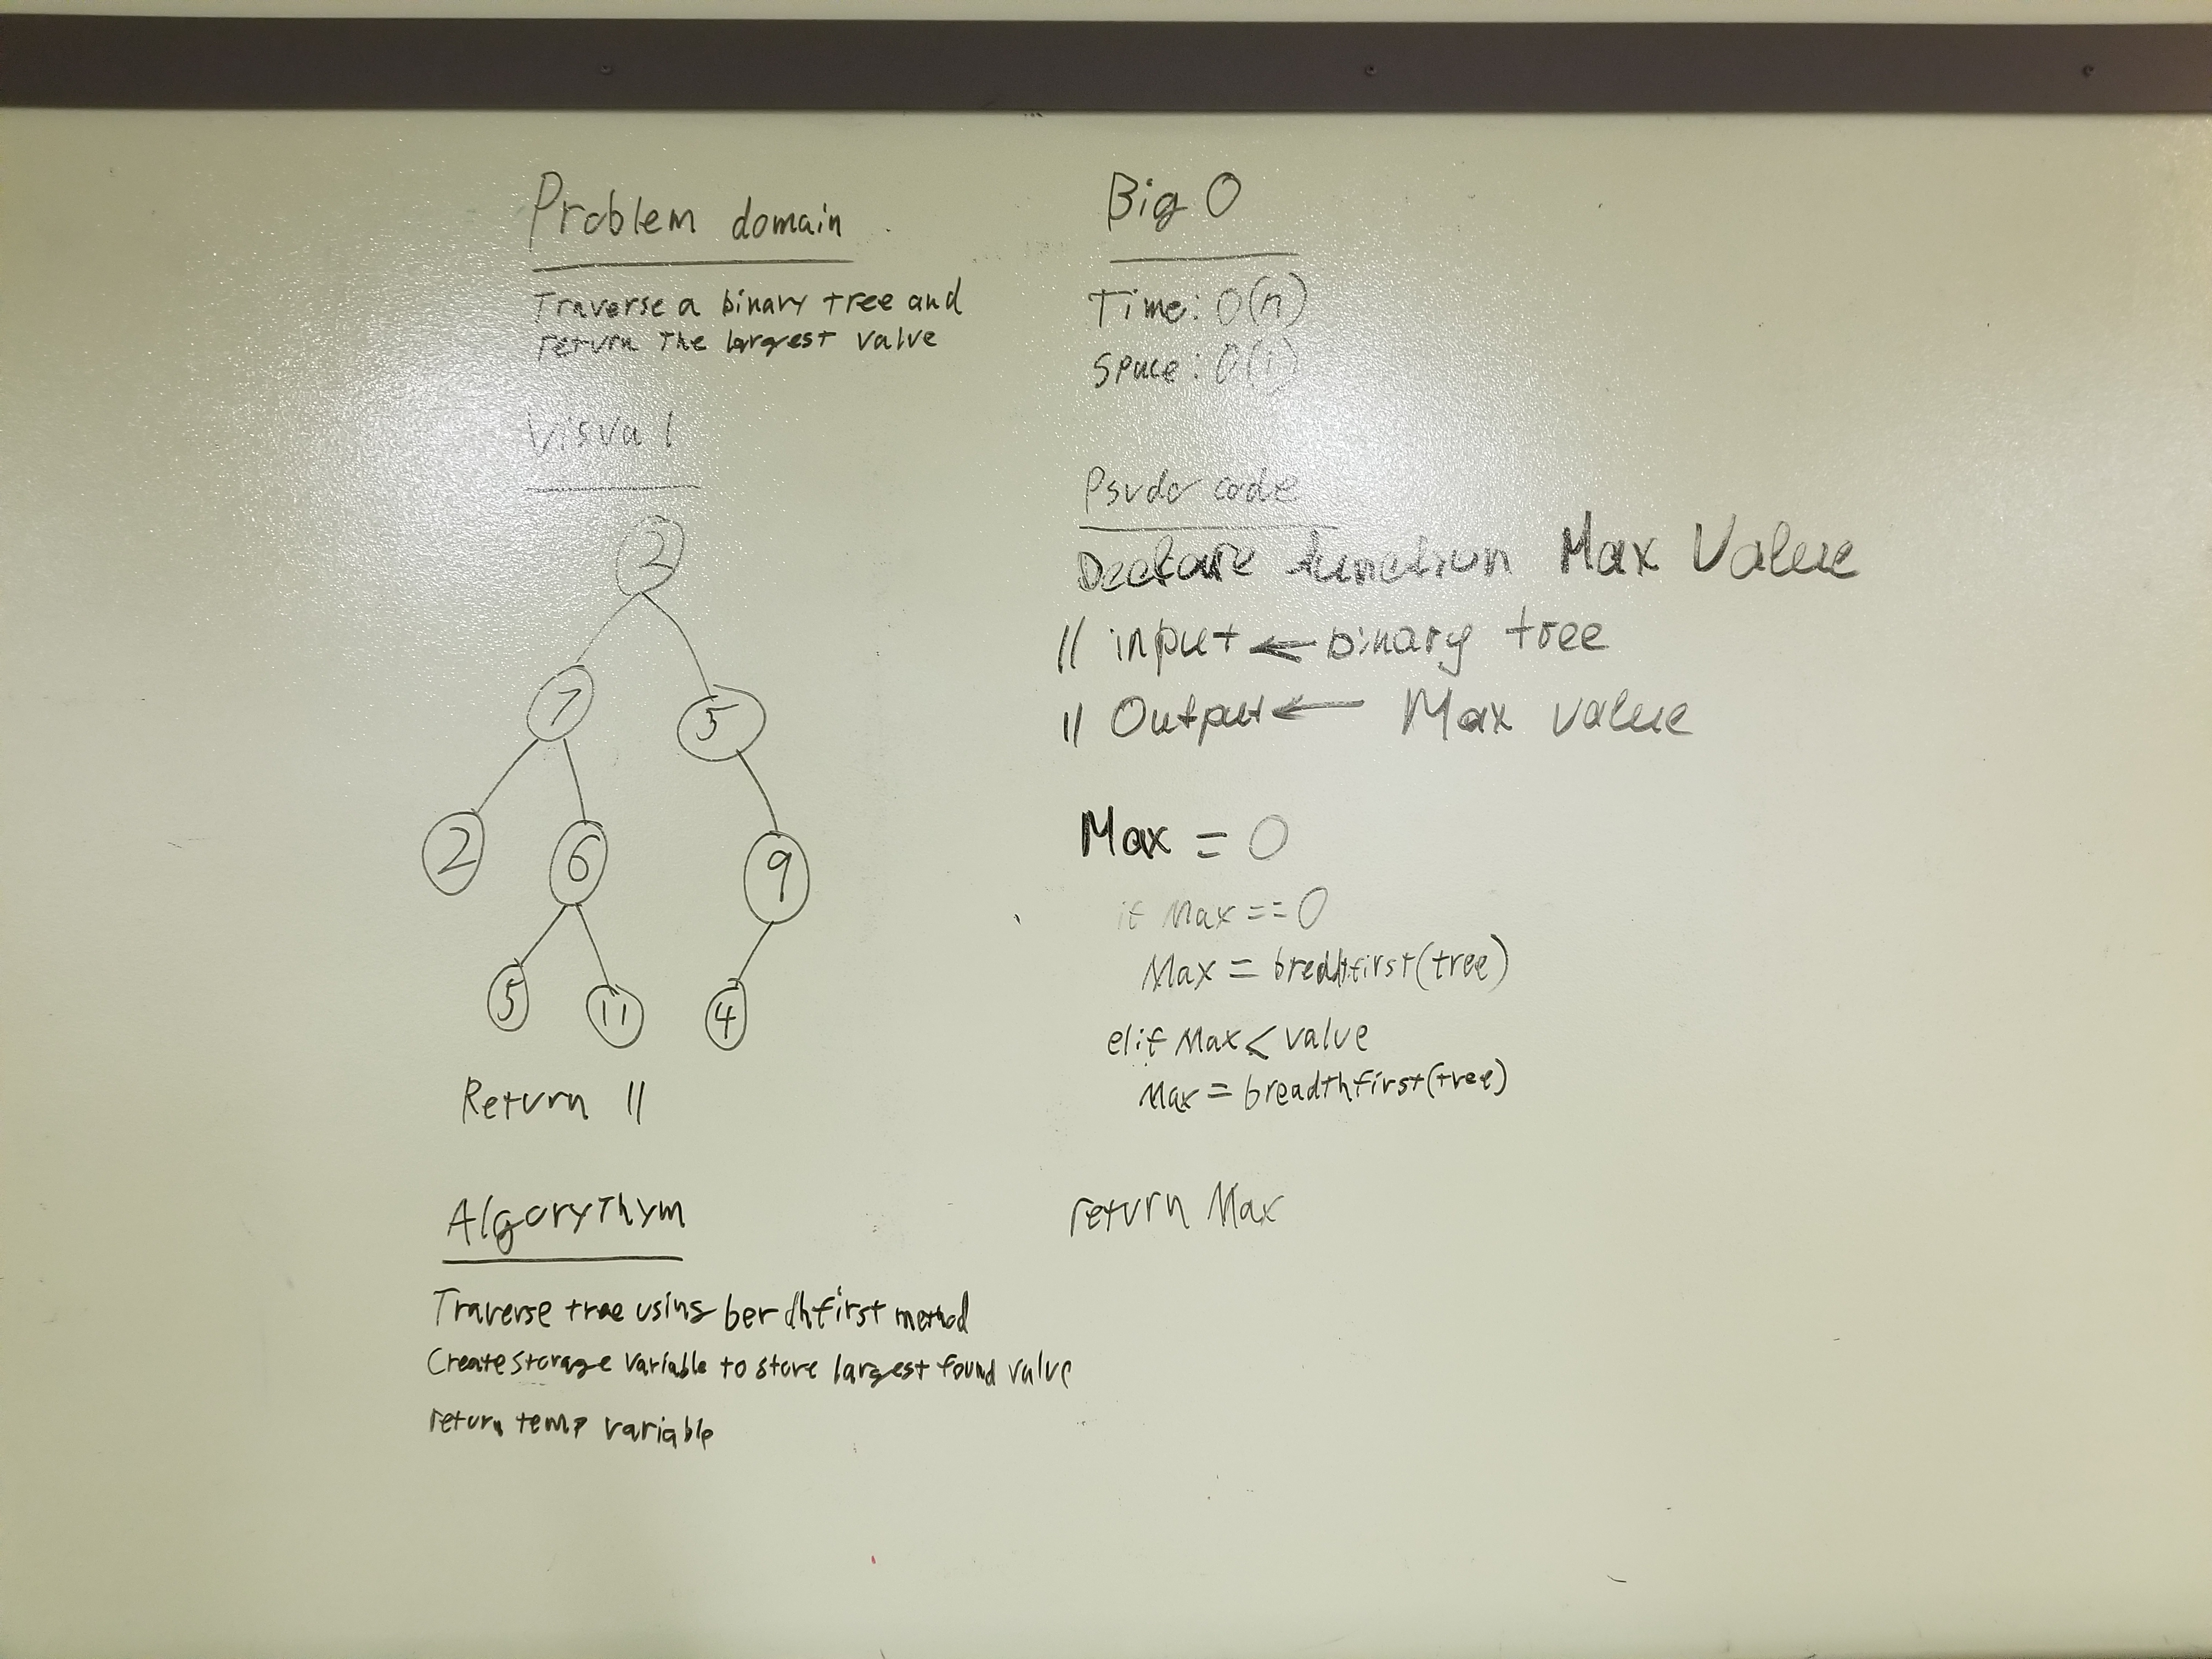 Problem domain
Traverse a binary tree and
return the largest value
Visual
2
7
5
2
6
9
5
11
4
Return 11
Algorythym
Traverse tree using berdhfirst method
Create storage variable to store largest found value
return temp variable
Big O
Time: O(n)
Space: O(1)
Psudo code
Declare function Max Value
// input ← binary tree
// Output ← Max value
Max = 0
if Max == 0
Max = bredhfirst(tree)
elif Max < value
Max = breadthfirst(tree)
return Max